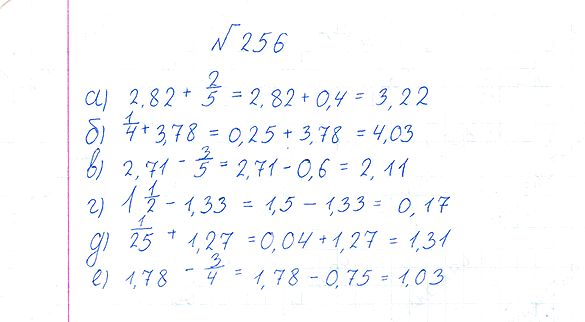 №256
а) 2,82 + 2/5 = 2,82 + 0,4 = 3,22
б) 1/4 + 3,78 = 0,25 + 3,78 = 4,03
в) 2,71 - 3/5 = 2,71 - 0,6 = 2,11
г) 1 1/2 - 1,33 = 1,5 - 1,33 = 0,17
д) 1/25 + 1,27 = 0,04 + 1,27 = 1,31
е) 1,78 - 3/4 = 1,78 - 0,75 = 1,03